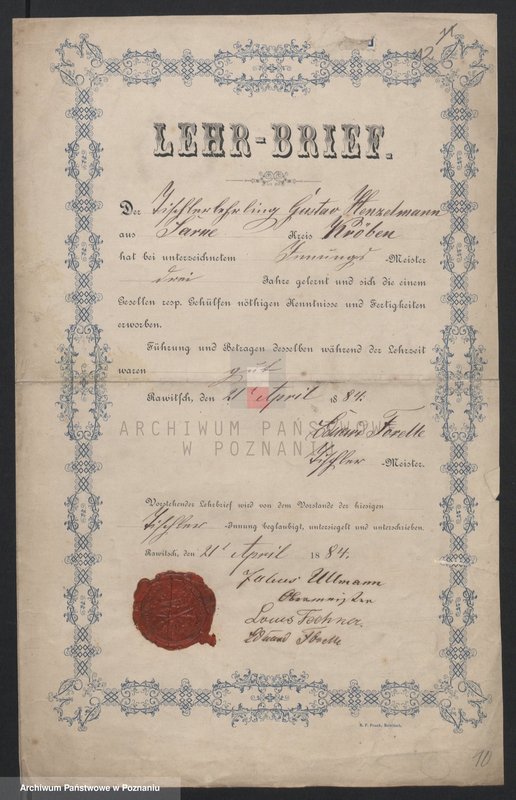 12
LEHR-BRIEF.
Der Tischlerlehrling Gustav Wenzelmann
aus Sarne Kreis Kröben
hat bei unterzeichnetem Innungs -Meister
drei Jahre gelernt und sich die einem
Gesellen resp. Gehülfen nöthigen Kenntnisse und Fertigkeiten
erworben.
Führung und Betragen desselben während der Lehrzeit
waren gut
Rawitsch, den 21t April 1884.
ARCHIWUM PAŃSTWOWE
W POZNANIU
Eduard
Tischler -Meister.
Vorstehender Lehrbrief wird von dem Vorstande der hiesigen
Tischler -Innung beglaubigt, untersiegelt und unterschrieben.
Rawitsch, den 21t April 1884.
Julius Ullmann
Obermeister
Louis
Eduard
R. F. Frank, Rawitsch.
10
Archiwum Państwowe w Poznaniu